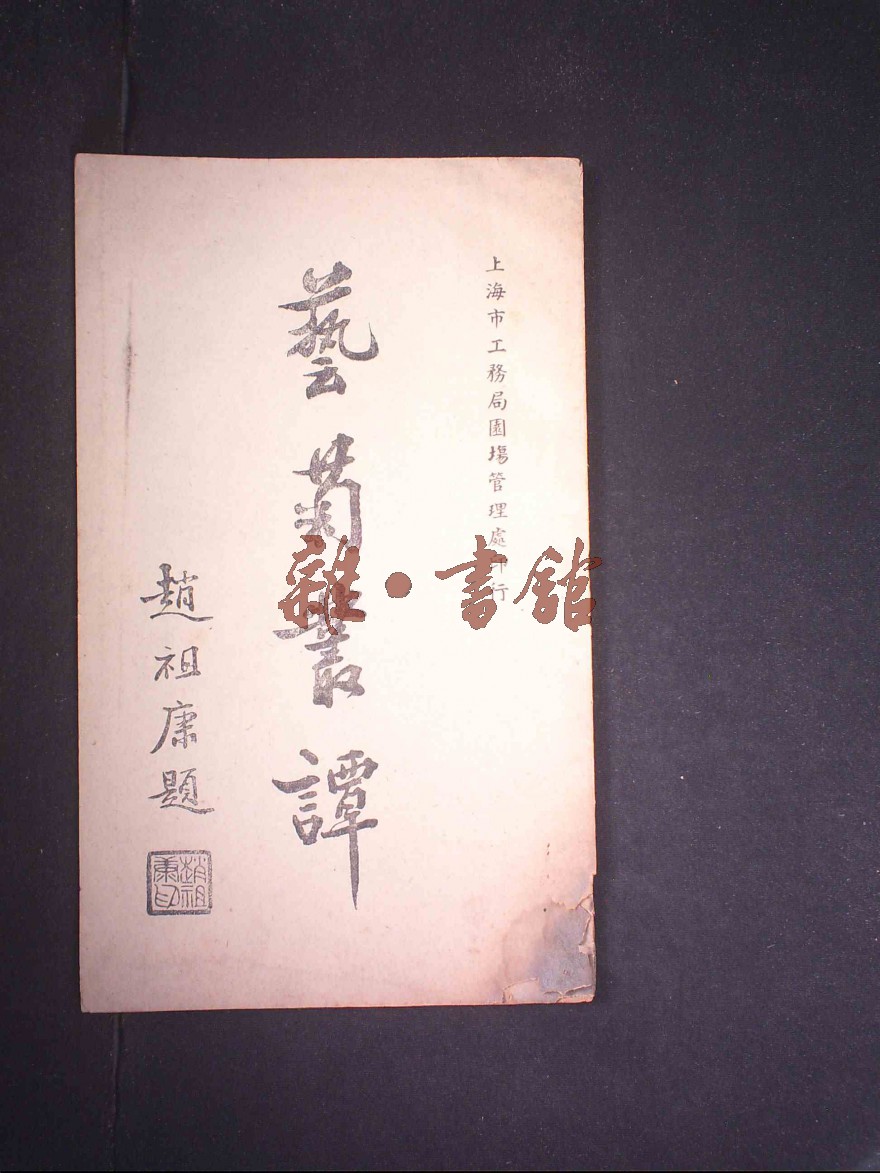 上海市工務局園場管理處印行
藝菊叢譚
趙祖康題
趙祖康印
雜·書館